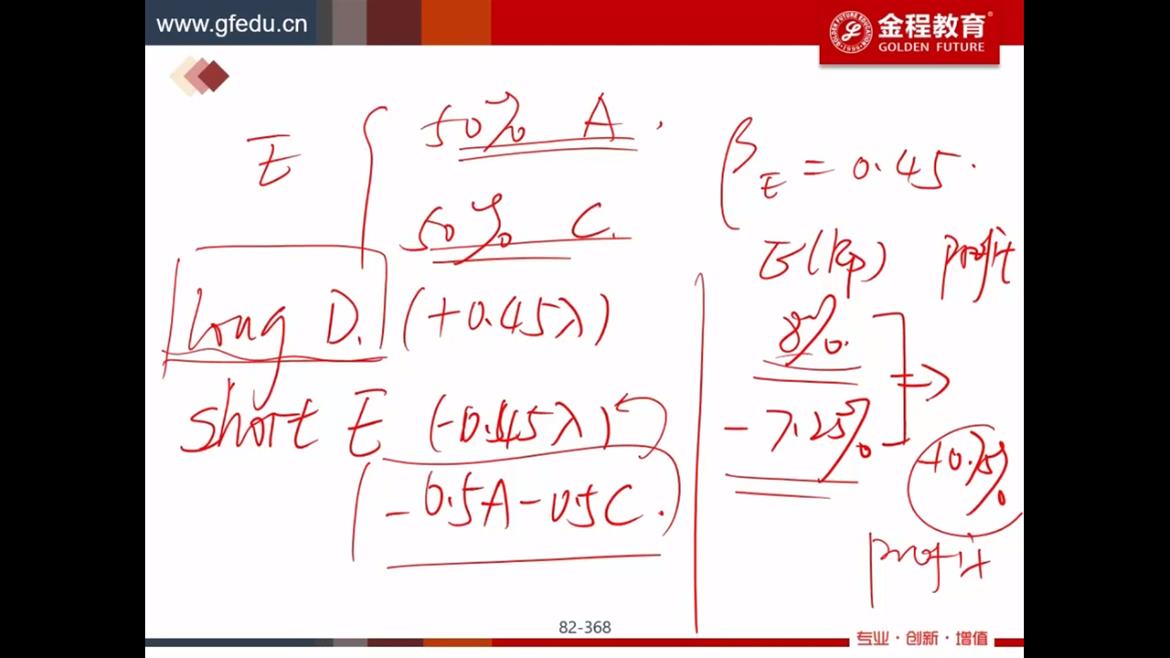 www.gfedu.cn
金程教育
GOLDEN FUTURE
E { 50% A
50% C.
β_E = 0.45.
E(Rp) profit
Long D. (+0.45λ)
8%
short E (-0.45λ)
-7.25%
+0.75%
-0.5A-0.5C.
profit
82-368
专业·创新·增值